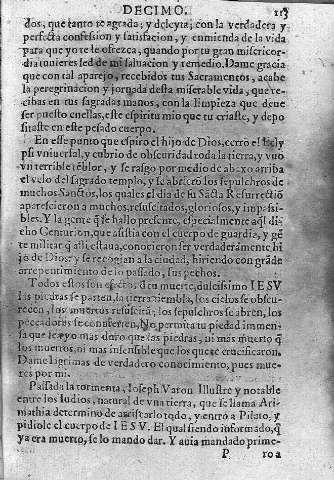 DECIMO. 113
dos, que tanto te agrada; y deleyta; con la verdadera y
perfecta confession y satisfacion, y enmienda de la vida
para que yo te le ofrezca, quando por tu gran misericor
dia tuuieres led de mi saluacion y remedio. Dame gracia
que con tal aparejo, recebidos tus Sacramentos, acabe
la peregrinacion y jornada desta miserable vida, que re-
cibas en tus sagradas manos, con la limpieza que deue
ser puesto en ellas, este espiritu mio que tu criaste, y depo
sitaste en este pesado cuerpo.
En este punto que espiro el hijo de Dios, ecclypsi
vniuersal, y cubrio de obscuridad toda la tierra, y vuo
vn terrible tẽblor, y se rasgo por medio de abaxo arriba
el velo del sagrado templo, y se abrierõ los sepulchros de
muchos Sanctos, los quales el dia de su Sãcta Resurrectiõ
aparescieron a muchos, resuscitados, gloriosos, y impassi-
bles. Y la gente q̃ se hallo presente, especialmente aq̃l di-
cho Centurion, que asistia con el cuerpo de guardia, y gẽ
te militar q̃ alli estaua, conocieron ser verdaderamente hi
jo de Dios: y se recogian a la ciudad, hiriendo con grãde
arrepentimiento de lo passado, sus pechos.
Todos estos son efectos de tu muerte, dulcissimo IESV
las piedras se parten, la tierra tiembla, los cielos se obscu-
recen, los muertos resuscitã, los sepulchros se abren, los
peccadores se conuierten, No permita tu piedad immen-
sa que sea yo mas duro que las piedras, ni mas muerto q̃
los muertos, ni mas insensible que los que te crucificaron.
Dame lagrimas de verdadero conocimiento, pues mue-
res por mi.
Passada la tormenta, Ioseph Varon Illustre y notable
entre los Iudios, natural de vna tierra, que se llama Ari-
mathia determino de auisturarlo todo, y entro a Pilato, y
pidiole el cuerpo de IESV. El qual siendo informado, q̃
ya era muerto, se lo mando dar. Y auia mandado prime-
P roa